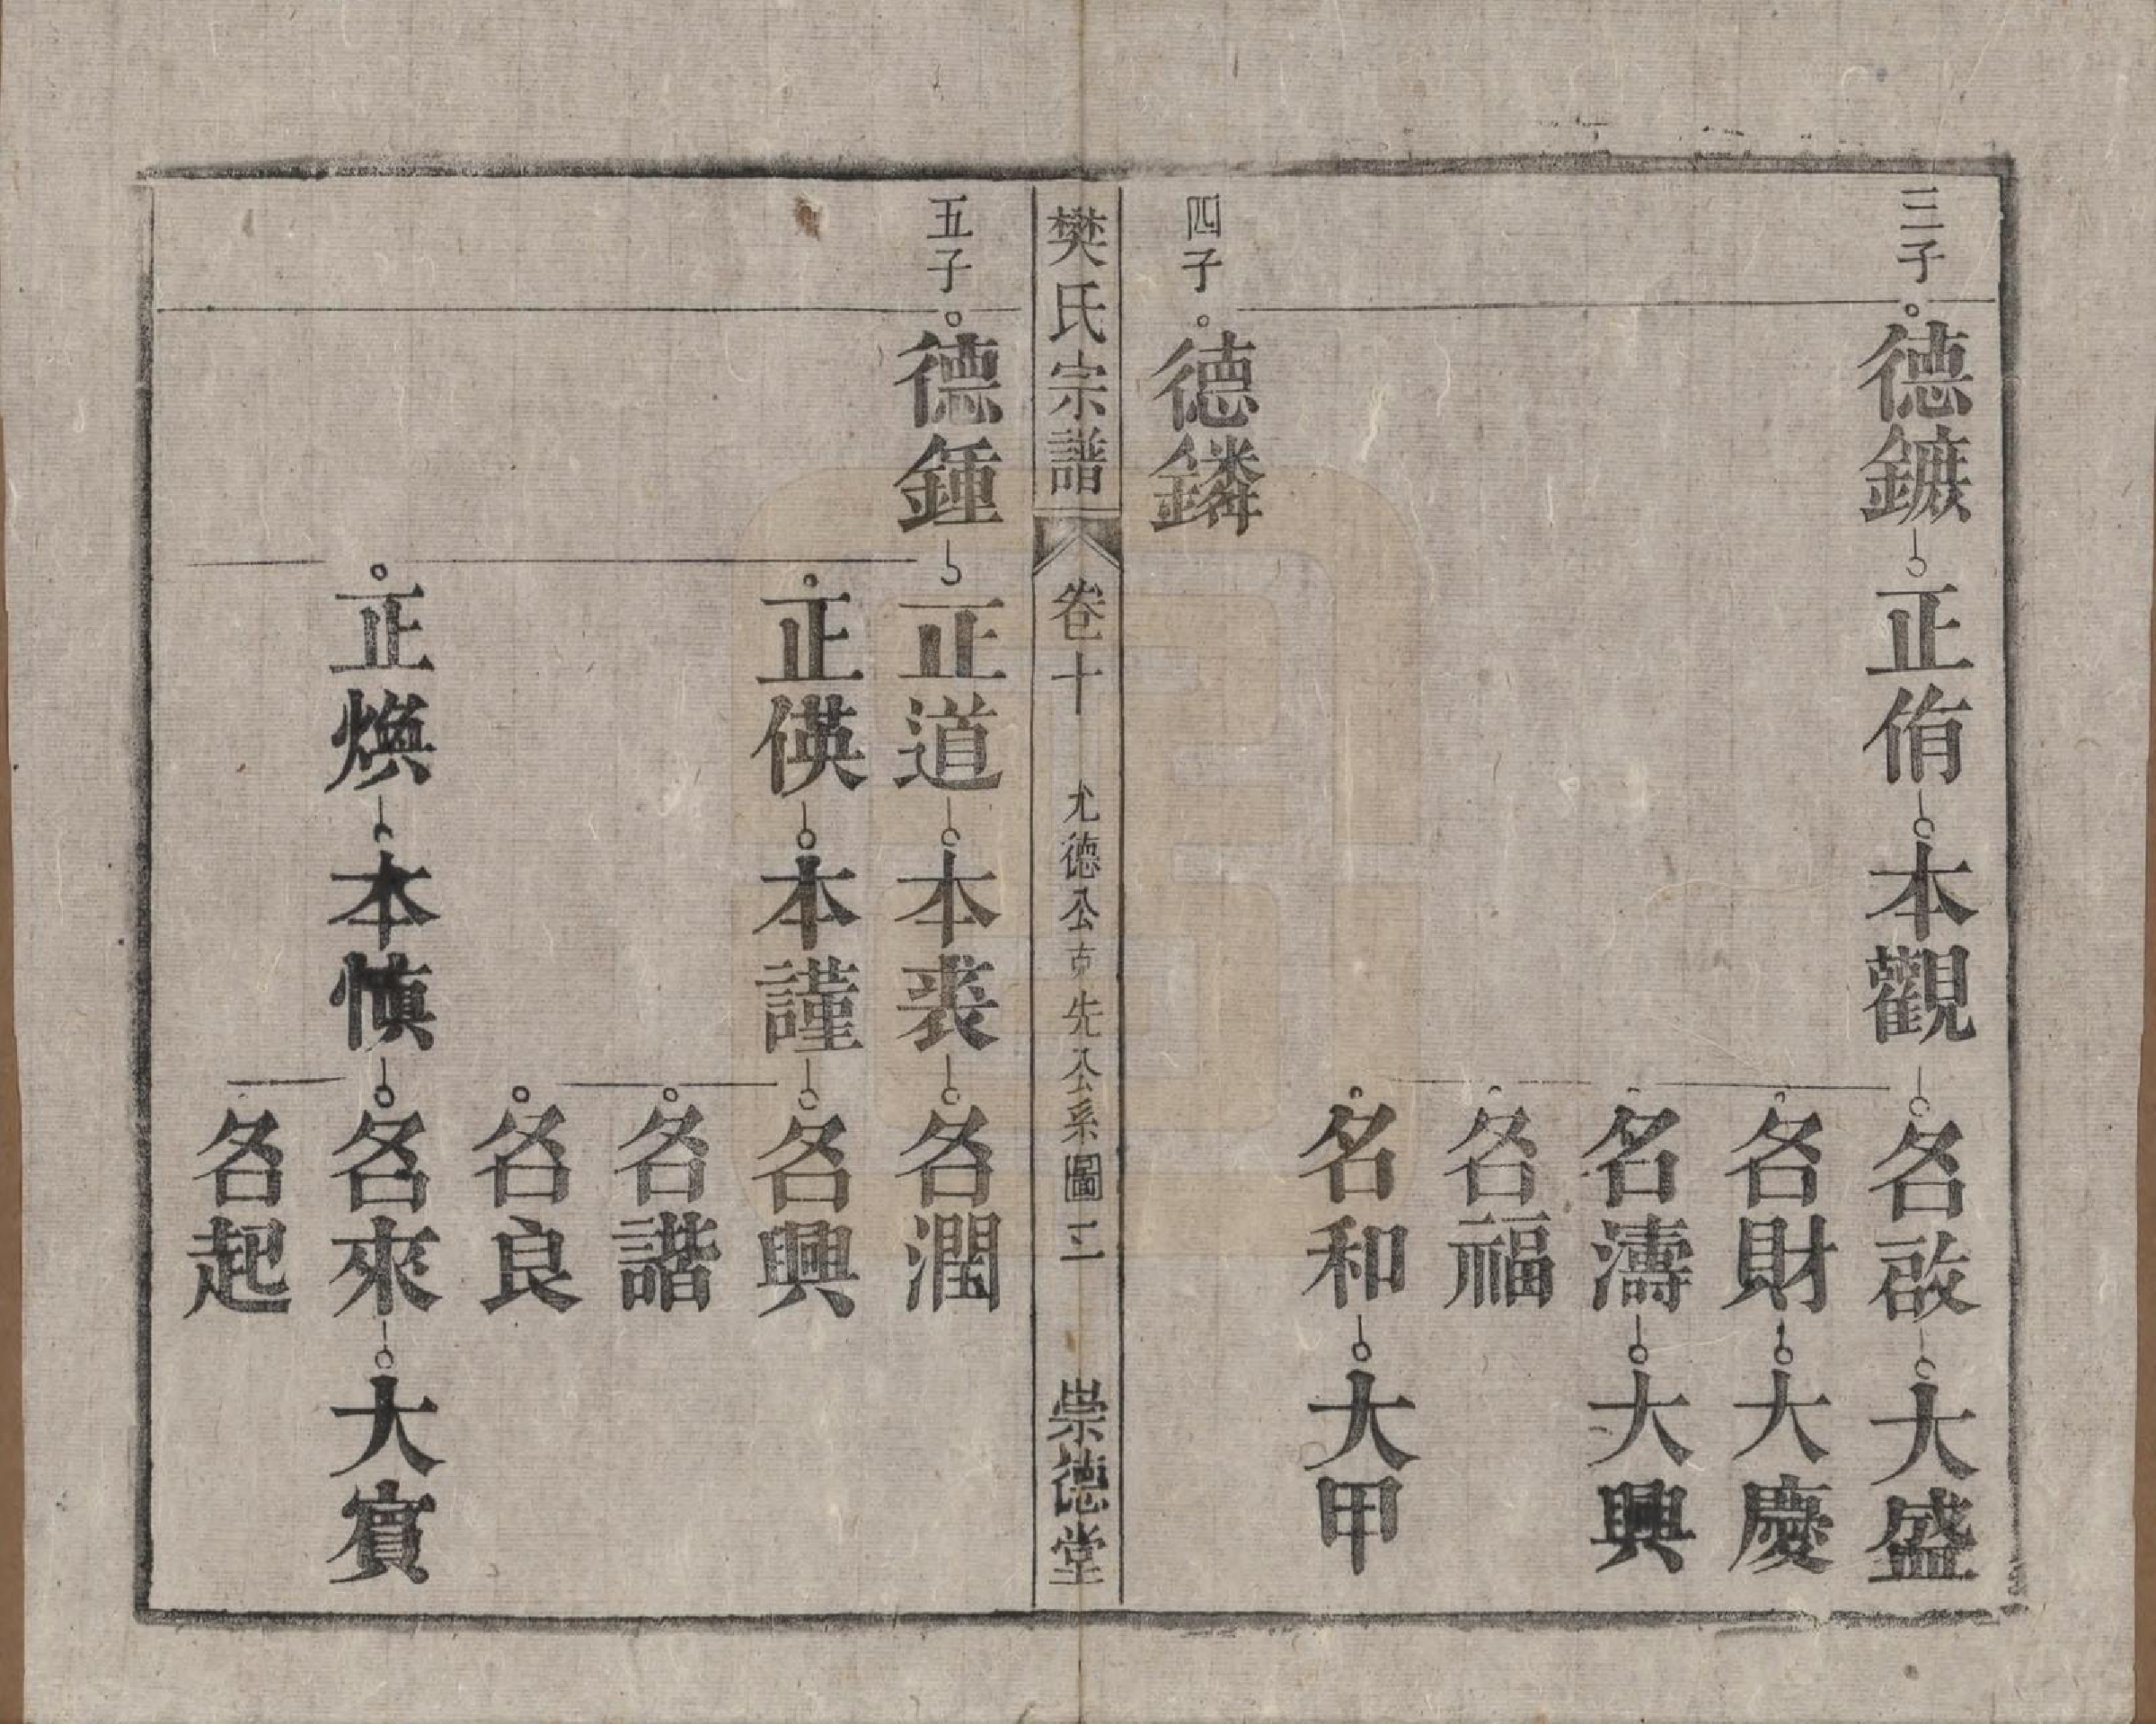 三子
德鏃
正侑
本觀
名啟
大盛
名財
大慶
名濤
大興
名福
名和
大甲
四子
德鏻
樊氏宗譜
卷十
尤德公克先公系圖三
崇德堂
五子
德鍾
正道
本裘
名潤
正偀
本謹
名興
名諧
名良
正煥
本慎
名來
大賔
名起